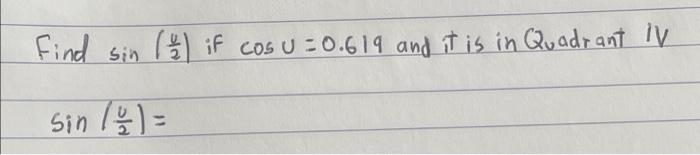 Find sin (u/2) if cos U = 0.619 and it is in Quadrant IV
sin (U/2) =